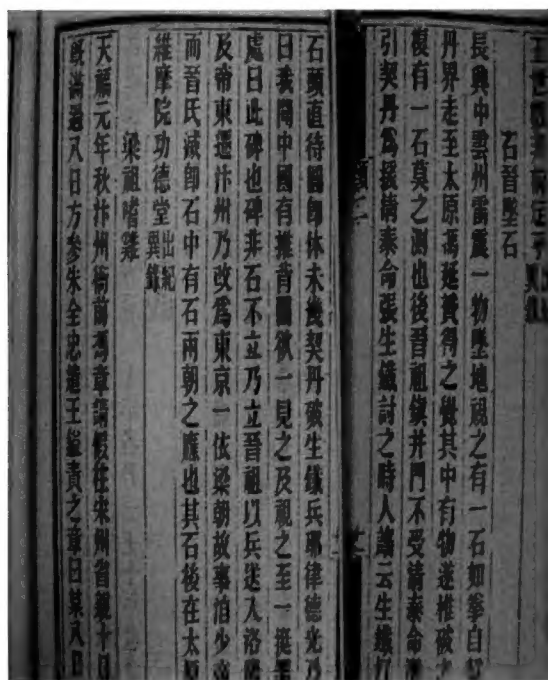 石晉墜石
長興中雲州雷震一物墜地視之有一石如拳自
丹界走至太原馮延贇得之覺其中有物遂椎破
復有一石莫之測也後晉祖鎮并門不受清泰命
引契丹為援清泰命張生鐵討之時人謠云生鐵
石頭直待圓即休未幾契丹破生鐵兵耶律德光乃
曰我聞中國有推背圖欲一見之及視之至一
處曰此碑也碑非石不立乃立晉祖以兵送入洛
及帝東遷汴州乃改為東京一依梁朝故事洎少帝
而晉氏滅即石中有石兩朝之應也其石後在太原
維摩院功德堂出紀異錄
梁祖嗜雞
天福元年秋汴州衙前馮章請假往宋州省親十日
既滿過八日方參朱全忠遣王 責之章曰某八日